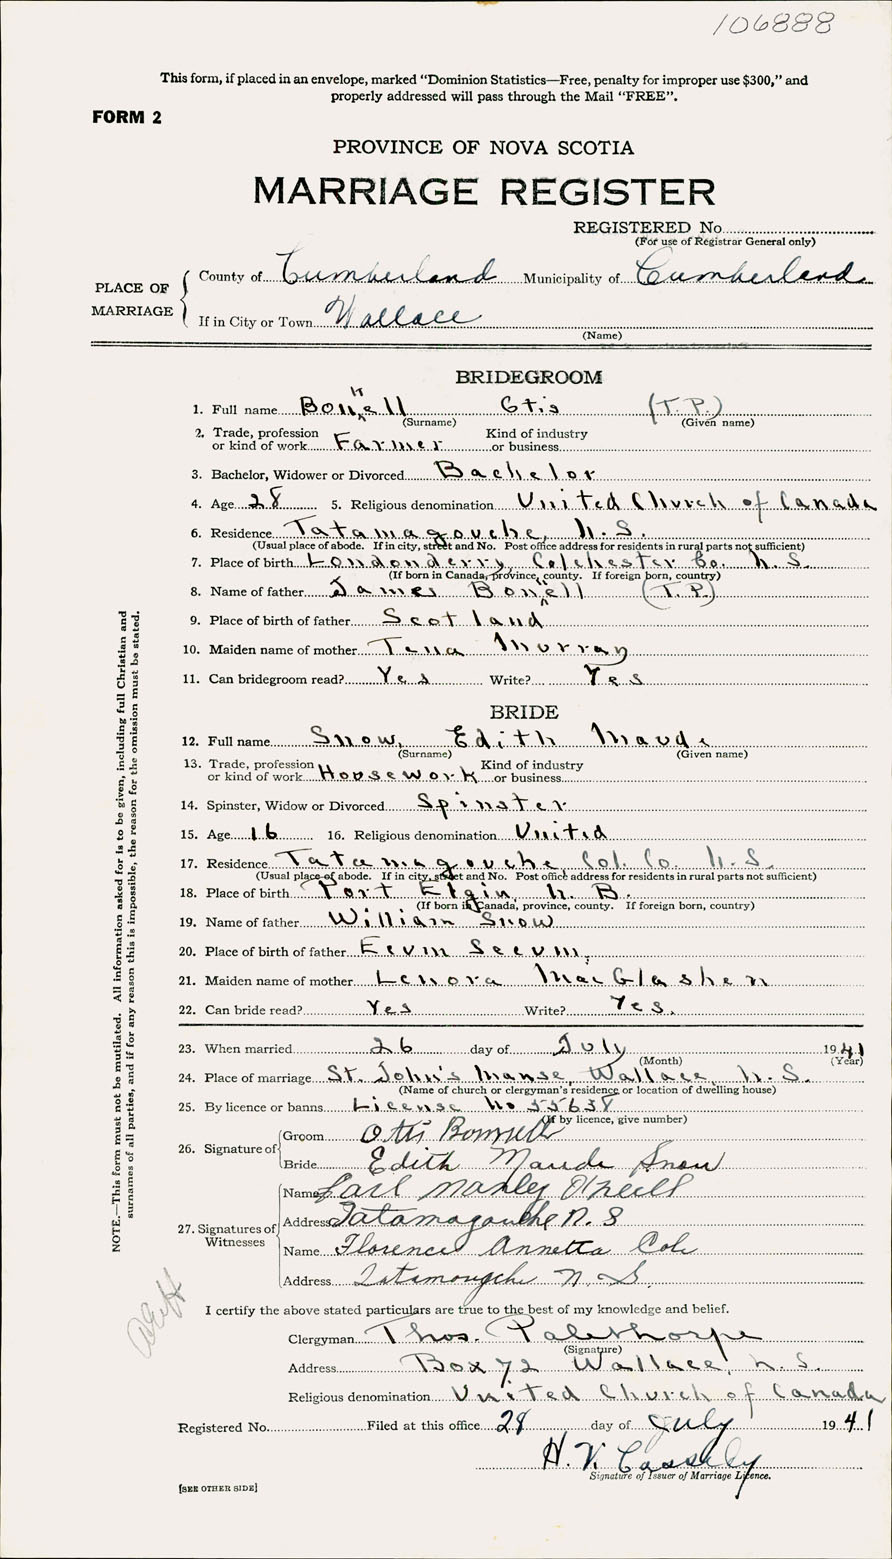 106888
This form, if placed in an envelope, marked “Dominion Statistics—Free, penalty for improper use $300,” and
properly addressed will pass through the Mail “FREE”.
FORM 2
PROVINCE OF NOVA SCOTIA
MARRIAGE REGISTER
REGISTERED No.
(For use of Registrar General only)
PLACE OF MARRIAGE
County of Cumberland Municipality of Cumberland
If in City or Town Wallace
(Name)
BRIDEGROOM
1. Full name Bonnell Otis (T.P.)
(Surname) (Given name)
2. Trade, profession or kind of work Farmer Kind of industry or business
3. Bachelor, Widower or Divorced Bachelor
4. Age 28 5. Religious denomination United Church of Canada
6. Residence Tatamagouche, N.S.
(Usual place of abode. If in city, street and No. Post office address for residents in rural parts not sufficient)
7. Place of birth Londonderry, Colchester Co. N.S.
(If born in Canada, province, county. If foreign born, country)
8. Name of father James Bonnell (T.P.)
9. Place of birth of father Scotland
10. Maiden name of mother Tena Murray
11. Can bridegroom read? Yes Write? Yes
BRIDE
12. Full name Snow, Edith Maude
(Surname) (Given name)
13. Trade, profession or kind of work Housework Kind of industry or business
14. Spinster, Widow or Divorced Spinster
15. Age 16 16. Religious denomination United
17. Residence Tatamagouche Col. Co. N.S.
(Usual place of abode. If in city, street and No. Post office address for residents in rural parts not sufficient)
18. Place of birth Port Elgin, N.B.
(If born in Canada, province, county. If foreign born, country)
19. Name of father William Snow
20. Place of birth of father Ecum Secum,
21. Maiden name of mother Lenora MacGlashen
22. Can bride read? Yes Write? Yes.
23. When married 26 day of July 1941
(Month) (Year)
24. Place of marriage St. John's Manse, Wallace, N.S.
(Name of church or clergyman's residence or location of dwelling house)
25. By licence or banns License No 55638
(If by licence, give number)
26. Signature of Groom Otis Bonnell
Bride Edith Maude Snow
27. Signatures of Witnesses
Name Earl Manley O'Neill
Address Tatamagouche N.S
Name Florence Annetta Cole
Address Tatamougche N.S.
I certify the above stated particulars are true to the best of my knowledge and belief.
Clergyman Thos. Palethorpe
(Signature)
Address Box 72 Wallace, N.S.
Religious denomination United Church of Canada
Registered No. Filed at this office 28 day of July 1941
H. V. Cassidy
Signature of Issuer of Marriage Licence.
[SEE OTHER SIDE]
NOTE.—This form must not be mutilated. All information asked for is to be given, including full Christian and
surnames of all parties, and if for any reason this is impossible, the reason for the omission must be stated.